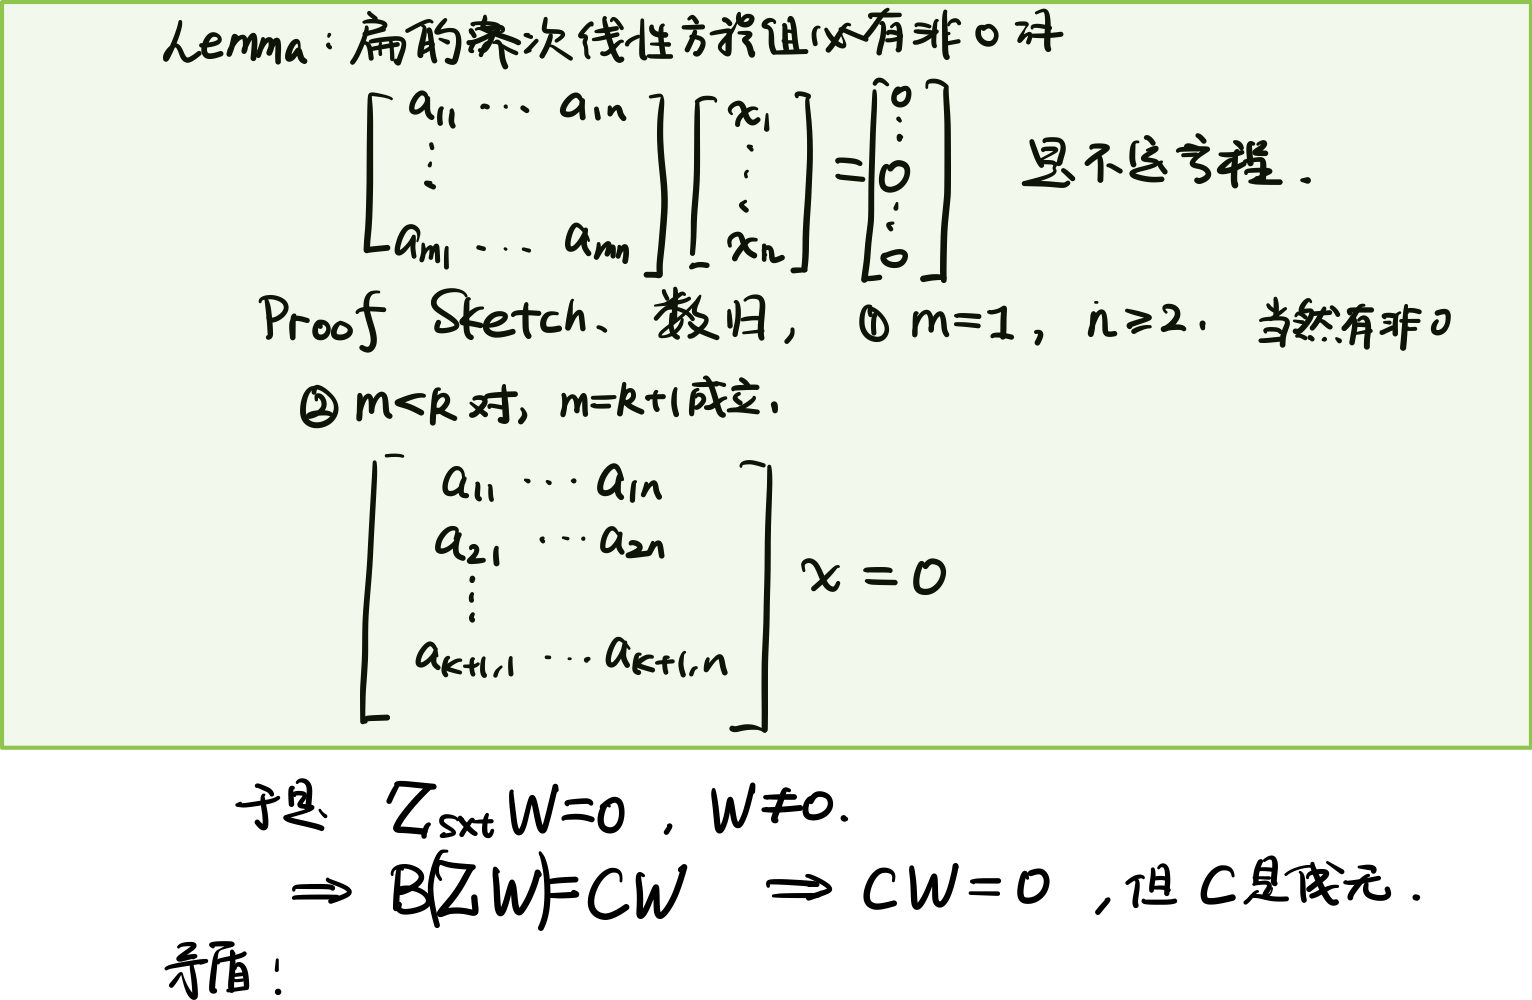 Lemma：扁的齐次线性方程组必有非0解
[a₁₁ ⋯ a₁ₙ ⋮ aₘ₁ ⋯ aₘₙ] [x₁ ⋮ xₙ] = [0 ⋮ 0 ⋮ 0] 是不定方程.
Proof Sketch、数归， ① m=1， n≥2. 当然有非0
② m<k对, m=k+1成立.
[a₁₁ ⋯ a₁ₙ
a₂₁ ⋯ a₂ₙ
⋮
aₖ₊₁,₁ ⋯ aₖ₊₁,ₙ] x = 0
于是 Z_{s×t} W=0 , W≠0.
⇒ B(ZW)=CW ⇒ CW=0 ,但 C是线无.
矛盾!